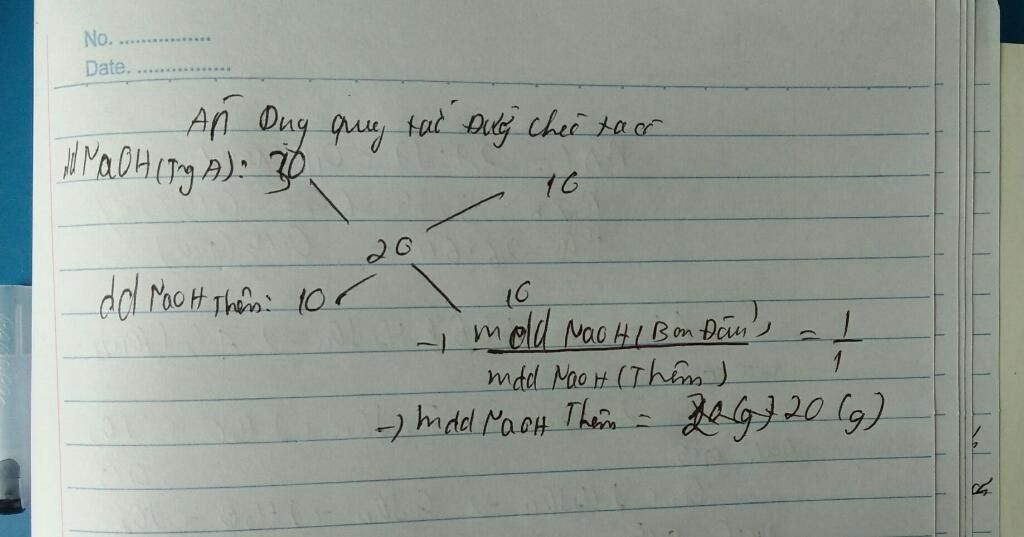 No. ..................
Date. ..................
Áp Dụng quy tắc Đường chéo ta có
dd NaOH (Tg A): 30
10
20
dd NaOH Thêm: 10
10
→ mdd NaOH (Ban Đầu) = 1
mdd NaOH (Thêm) 1
→ mdd NaOH Thêm = 20 (g)